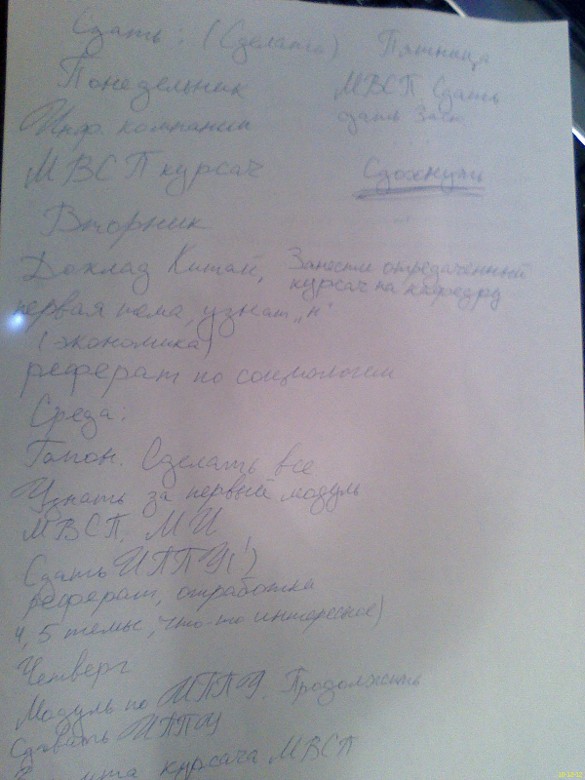 Сдать: (Сделать)
Понедельник
Инф. компании
МВСП курсач
Вторник
Доклад Китай,
первая тема, узнать „н"
(экономика)
реферат по социологии
Занести отредаченный
курсач на кафедру
Среда.
Гапон. Сделать все
Узнать за первый модуль
МВСП, МИ
Сдать ИППУ(!)
реферат, отработка
4, 5 темы, что-то интересное)
Четверг
Модуль по ИППУ. Продолжить
Сдавать ИППУ
курсача МВСП
Пятница
МВСП Сдать
сдать
Сдохнуть